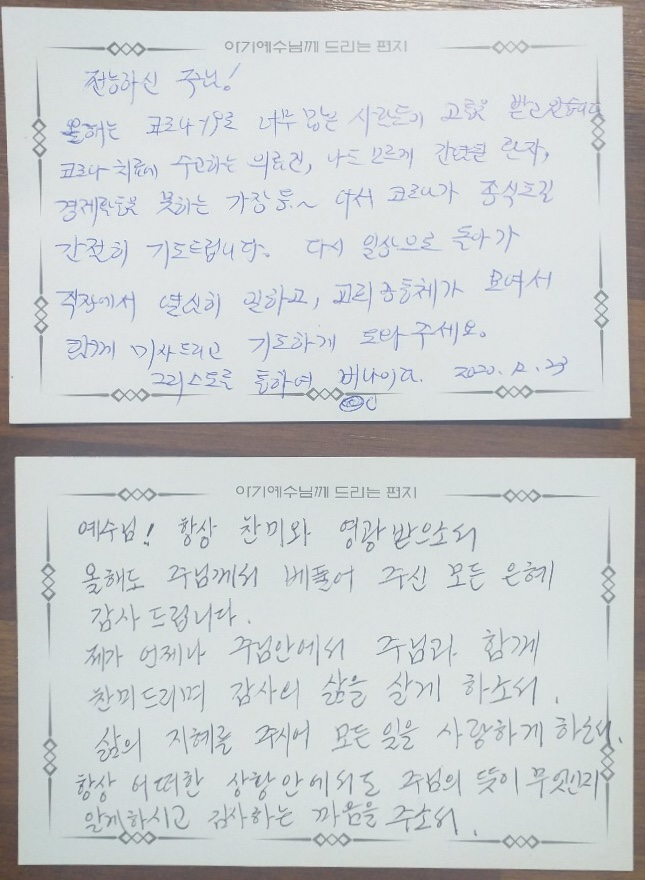 아기예수님께 드리는 편지
전능하신 주님!
올해는 코로나19로 너무 많은 사람들이 고통을 받고 있습니다
코로나 치료에 수고하는 의료진, 나도 모르게 감염된 환자,
경제활동을 못하는 가장 등~ 어서 코로나가 종식되길
간절히 기도드립니다. 다시 일상으로 돌아가
직장에서 열심히 일하고, 교회공동체가 모여서
함께 미사드리고 기도하게 도와주세요.
그리스도를 통하여 비나이다. 2020. 12. 23
아기예수님께 드리는 편지
예수님! 항상 찬미와 영광받으소서
올해도 주님께서 베풀어 주신 모든 은혜
감사드립니다.
제가 언제나 주님안에서 주님과 함께
찬미드리며 감사의 삶을 살게 하소서.
삶의 지혜를 주시어 모든 일을 사랑하게 하소서.
항상 어떠한 상황안에서도 주님의 뜻이 무엇인지
알게하시고 감사하는 마음을 주소서.